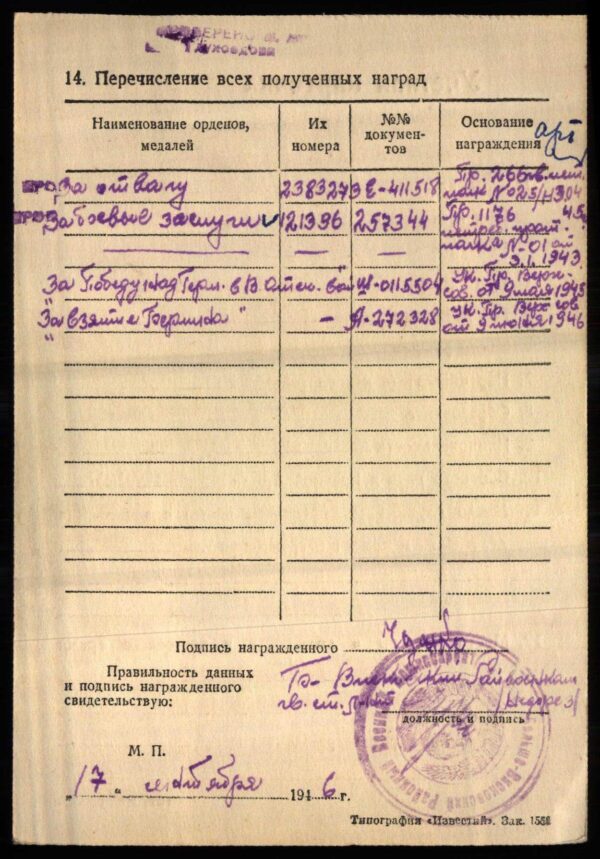 14. Перечисление всех полученных наград
Наименование орденов, медалей
Их номера
№№ докумен-тов
Основание награждения
арт
За отвагу 2383273 Е-411518 Пр. 266 гв.
полка № 025/н 30.4
45
За боевые заслуги 121396 257344 Пр. 1176
полка № 01 от
9.1.1943
"За Победу над Герм. в В. отеч. в Ш-0115504 Ук. През. Верх.
сов. от 9 мая 1945
"За взятие Берлина" – А-272328 Ук. През. Верх сов
от 9 июня 1946
Подпись награжденного
Правильность данных
и подпись награжденного
свидетельствую:
Б-Висковский Райвоенком
гв. ст. л-нт
должность и подпись
М. П.
„17 “ сентября 1946 г.
Типография «Известий». Зак. 1552